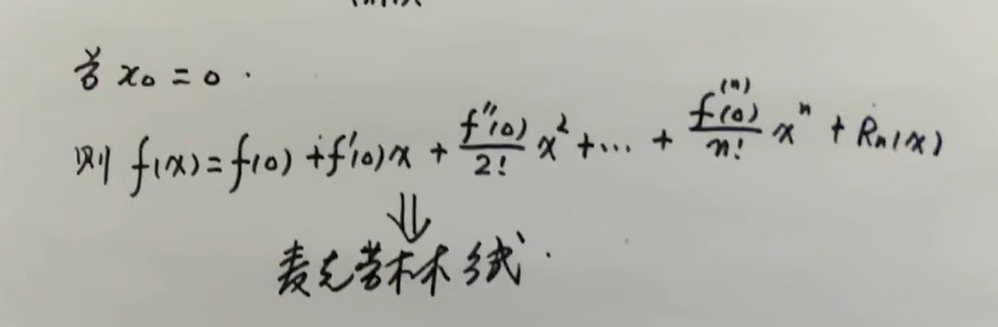 若 x₀ = 0 .
则 f(x) = f(0) + f'(0)x + \frac{f''(0)}{2!} x² + ... + \frac{f^{(n)}(0)}{n!} xⁿ + Rₙ(x)
⇓
麦克劳林公式 .